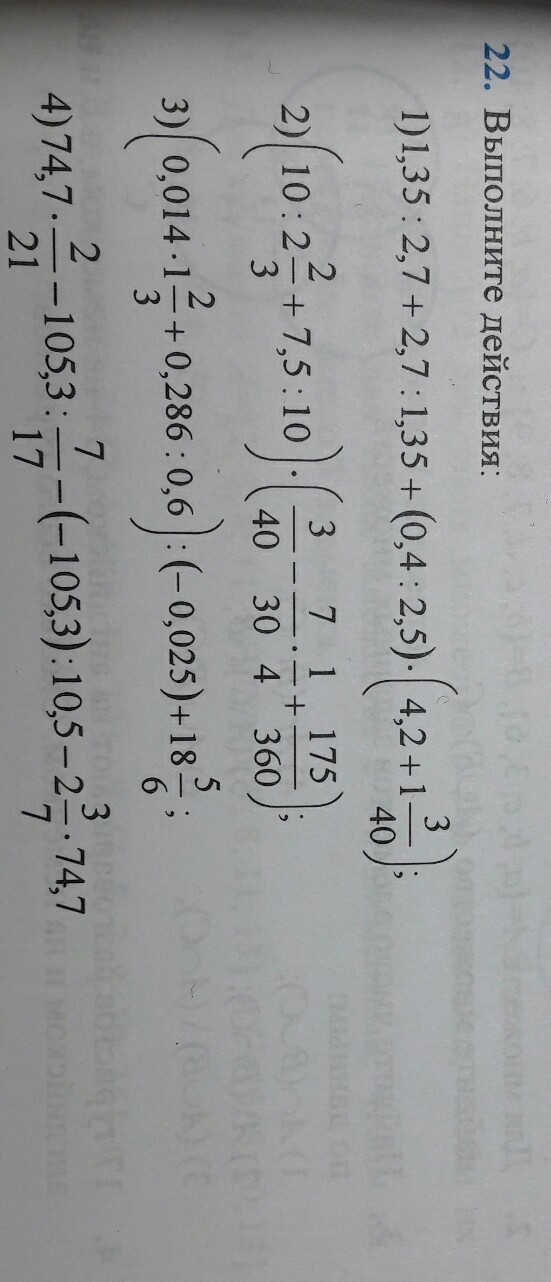 22. Выполните действия:
1) 1,35 : 2,7 + 2,7 : 1,35 + (0,4 : 2,5) · (4,2 + 1 3/40);
2) (10 : 2 2/3 + 7,5 : 10) · (3/40 − 7/30 · 1/4 + 175/360);
3) (0,014 · 1 2/3 + 0,286 : 0,6) : (−0,025) + 18 5/6;
4) 74,7 · 2/21 − 105,3 : 7/17 − (−105,3) : 10,5 − 2 3/7 · 74,7